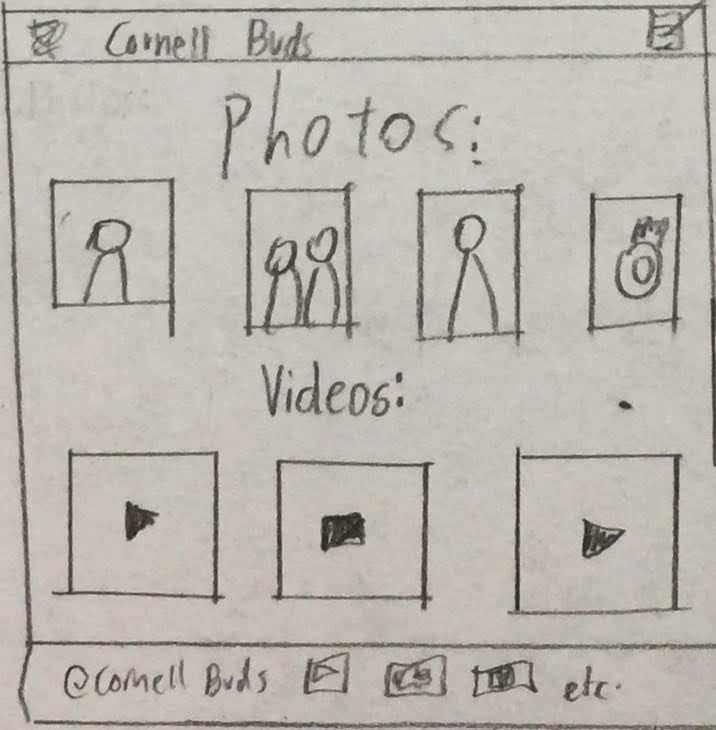 Cornell Buds
Photos:
Videos:
@Cornell Buds etc.